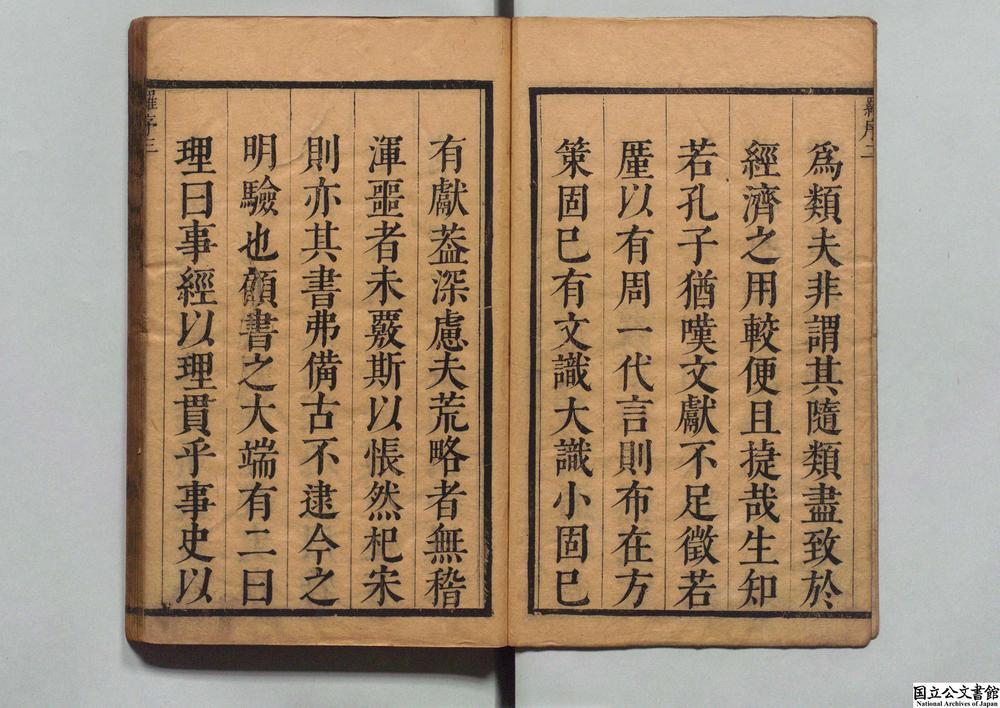 羅序二
爲類夫非謂其隨類盡致於
經濟之用較便且㨗哉生知
若孔子猶嘆文獻不足徵若
厪以有周一代言則布在方
策固已有文識大識小固已
有獻葢深慮夫荒略者無稽
渾噩者未覈斯以悵然杞宋
則亦其書弗備古不逮今之
明驗也顧書之大端有二曰
理曰事經以理貫乎事史以
羅序三
国立公文書館
National Archives of Japan